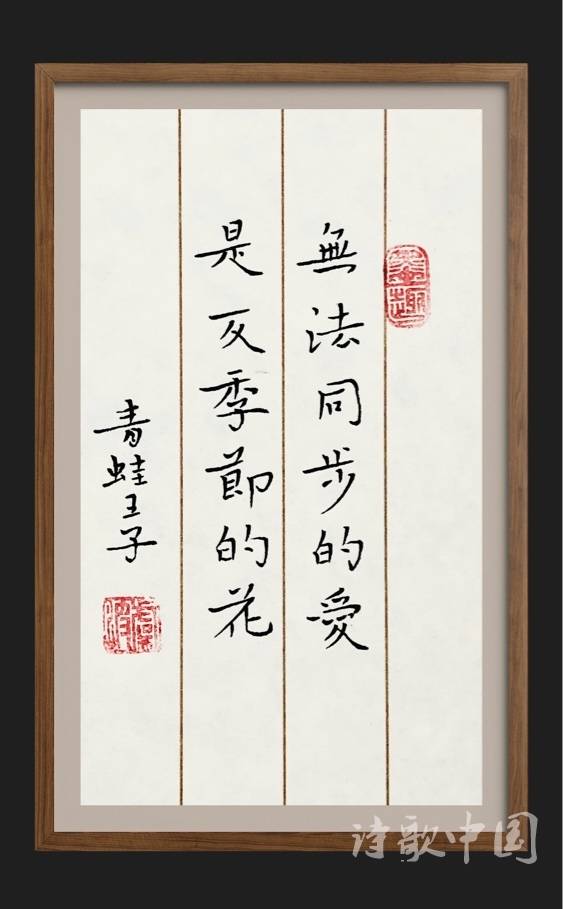 無法同步的愛
是反季節的花
青蛙王子
墨趣
诗歌中国